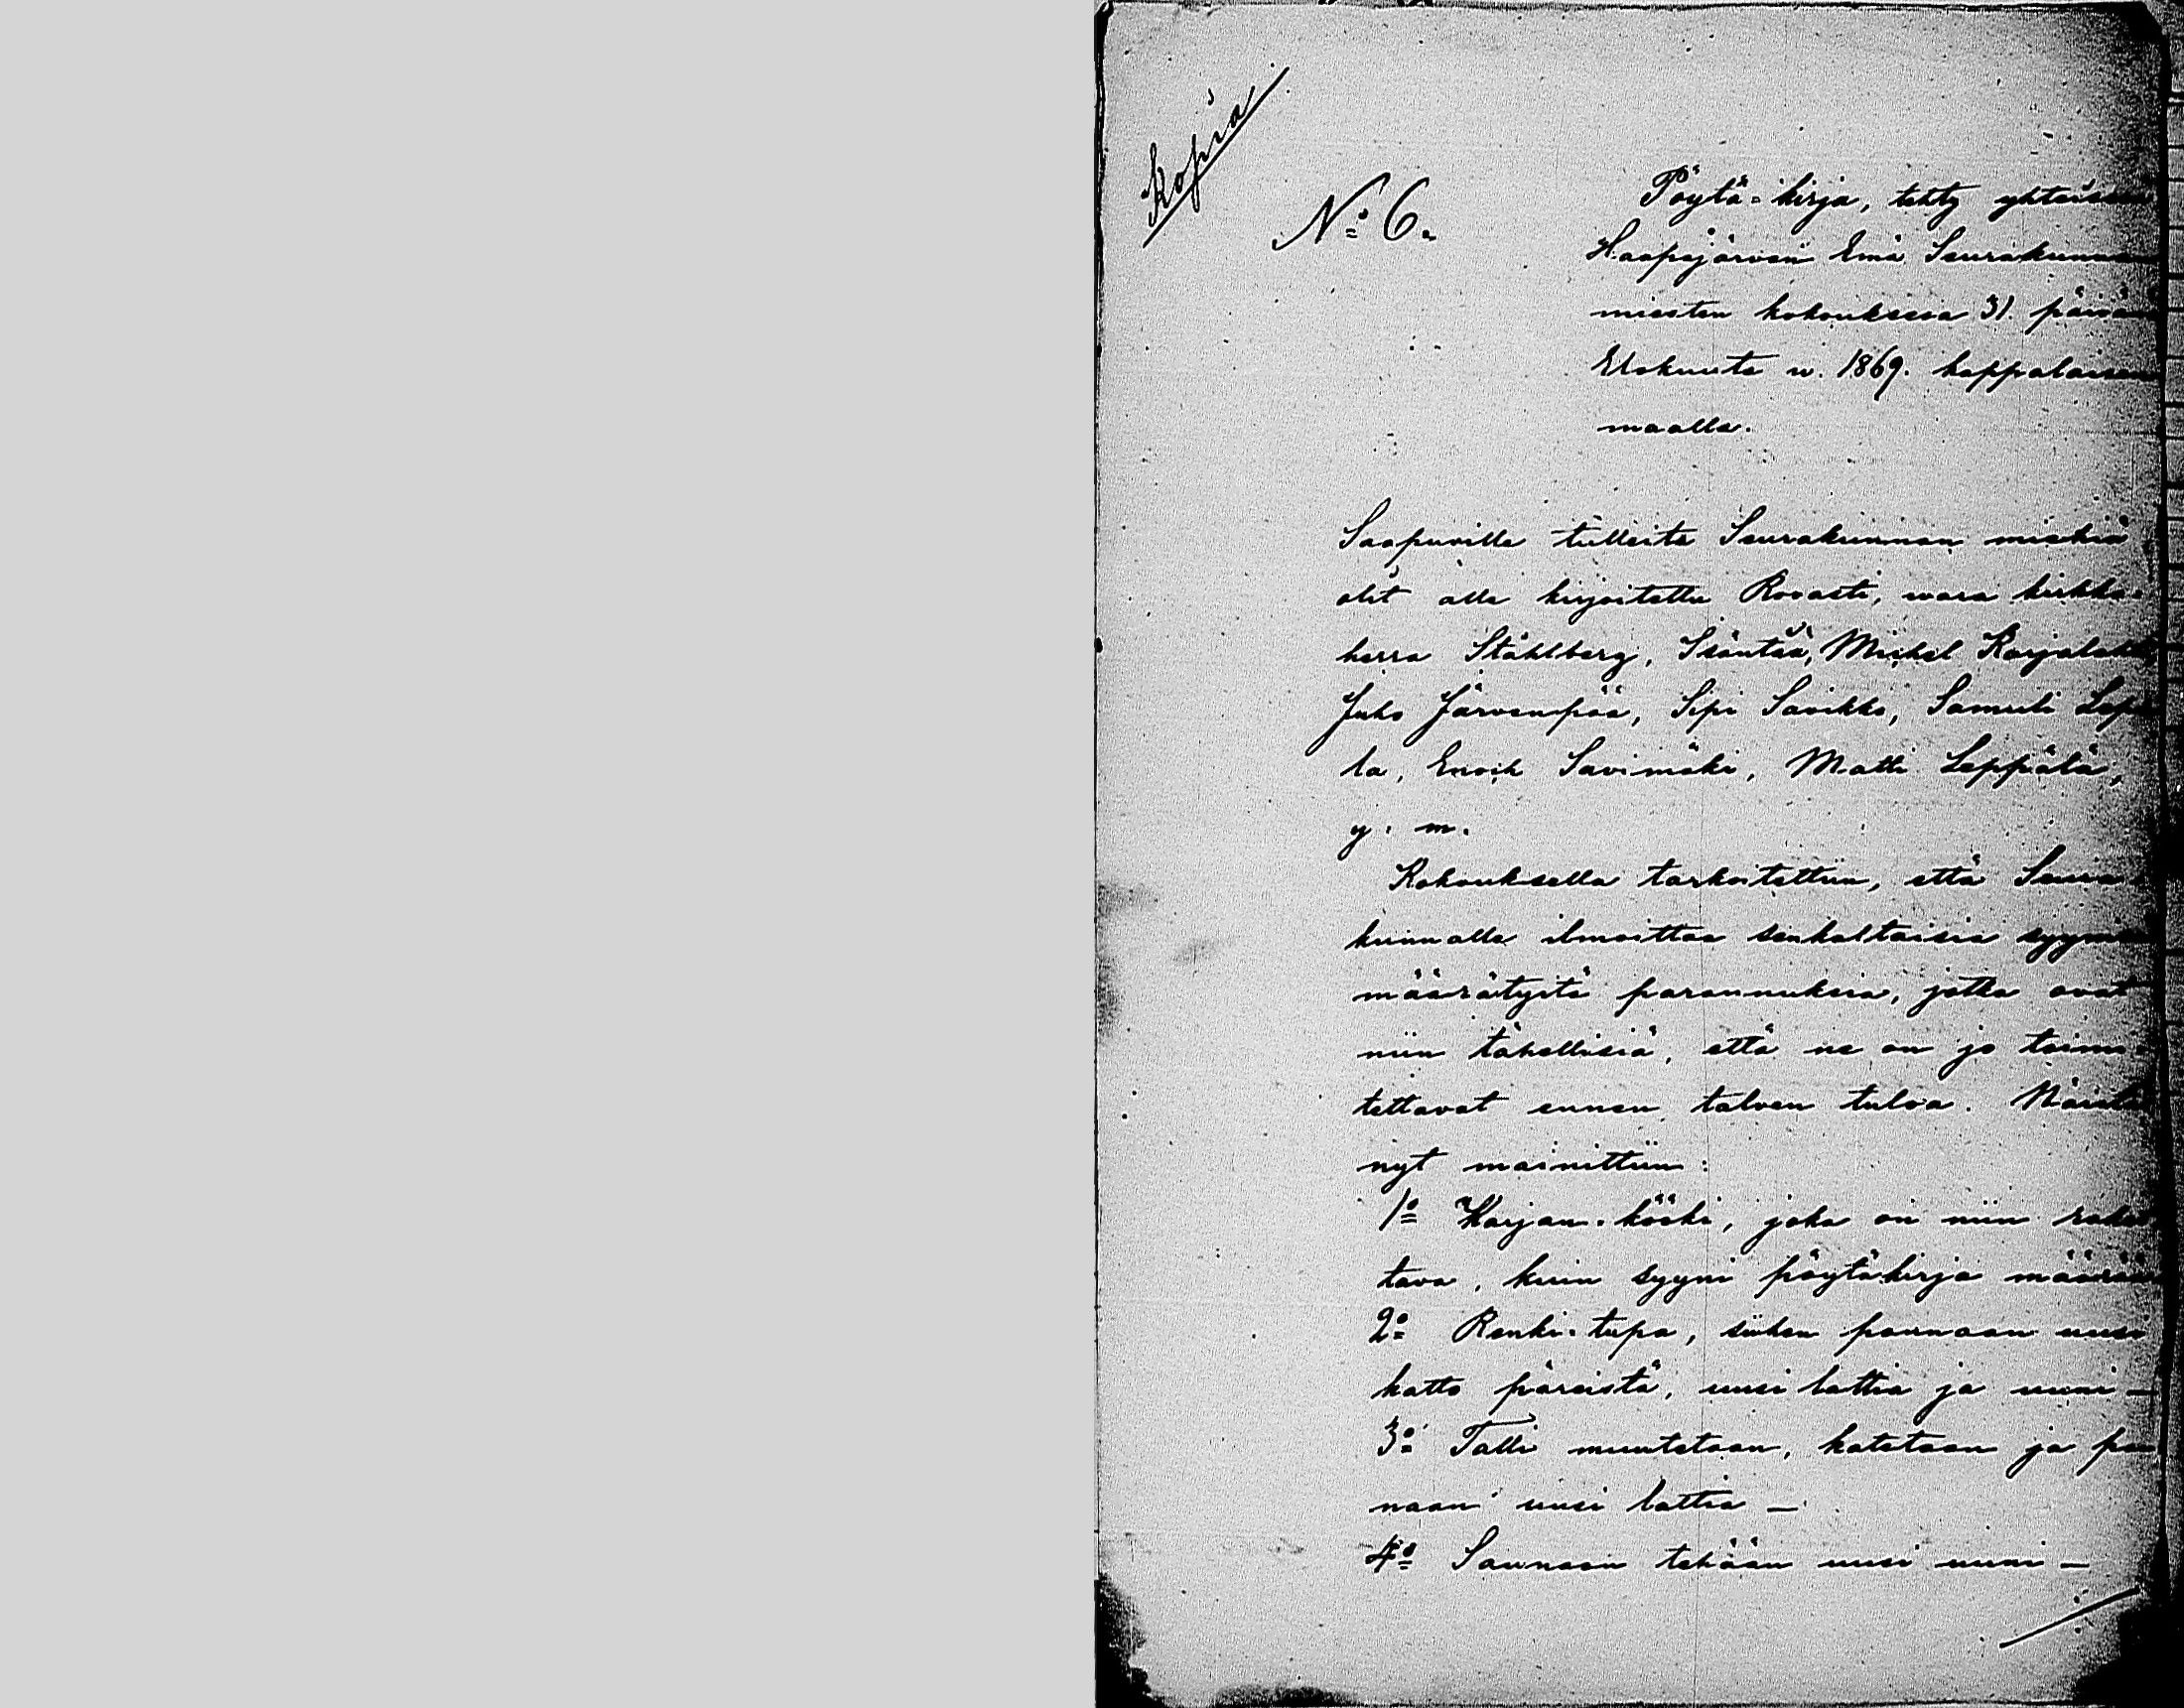 Kopia
No 6.
Pöytä-kirja, tehty yhteisessä
Haapajärven Emä Seurakunnan
miesten kokouksessa 31. päivänä
Elokuuta w. 1869. kappalaisen
maalla.
Saapuville tulleita Seurakunnan miehiä
olit alle kirjoitettu Rovasti, wara kirkko-
herra Ståhlberg, Isäntiä, Mickel Karjalahti,
Juho Järvenpää, Sipi Savikko, Samuli Leppä
la, Enoch Savimäki, Matti Leppälä,
y. m.
Kokouksella tarkoitettiin, että Seura
kunnalle ilmoittaa senkaltaisia syynissä
määrätyitä parannuksia, jotka ovat
niin tähellisiä, että ne on jo toimi-
tettavat ennen talven tuloa. Näistä
nyt mainittiin:
1o Karjan-kööki, joka on niin raket
tava, kuin syyni pöytäkirja määrää
2o Renki-tupa, siihen pannaan uusi
katto päreistä, uusi lattia ja uuni —
3o Talli muutetaan, katetaan ja pan
naan uusi lattia —
4o Saunaan tehään uusi uuni —